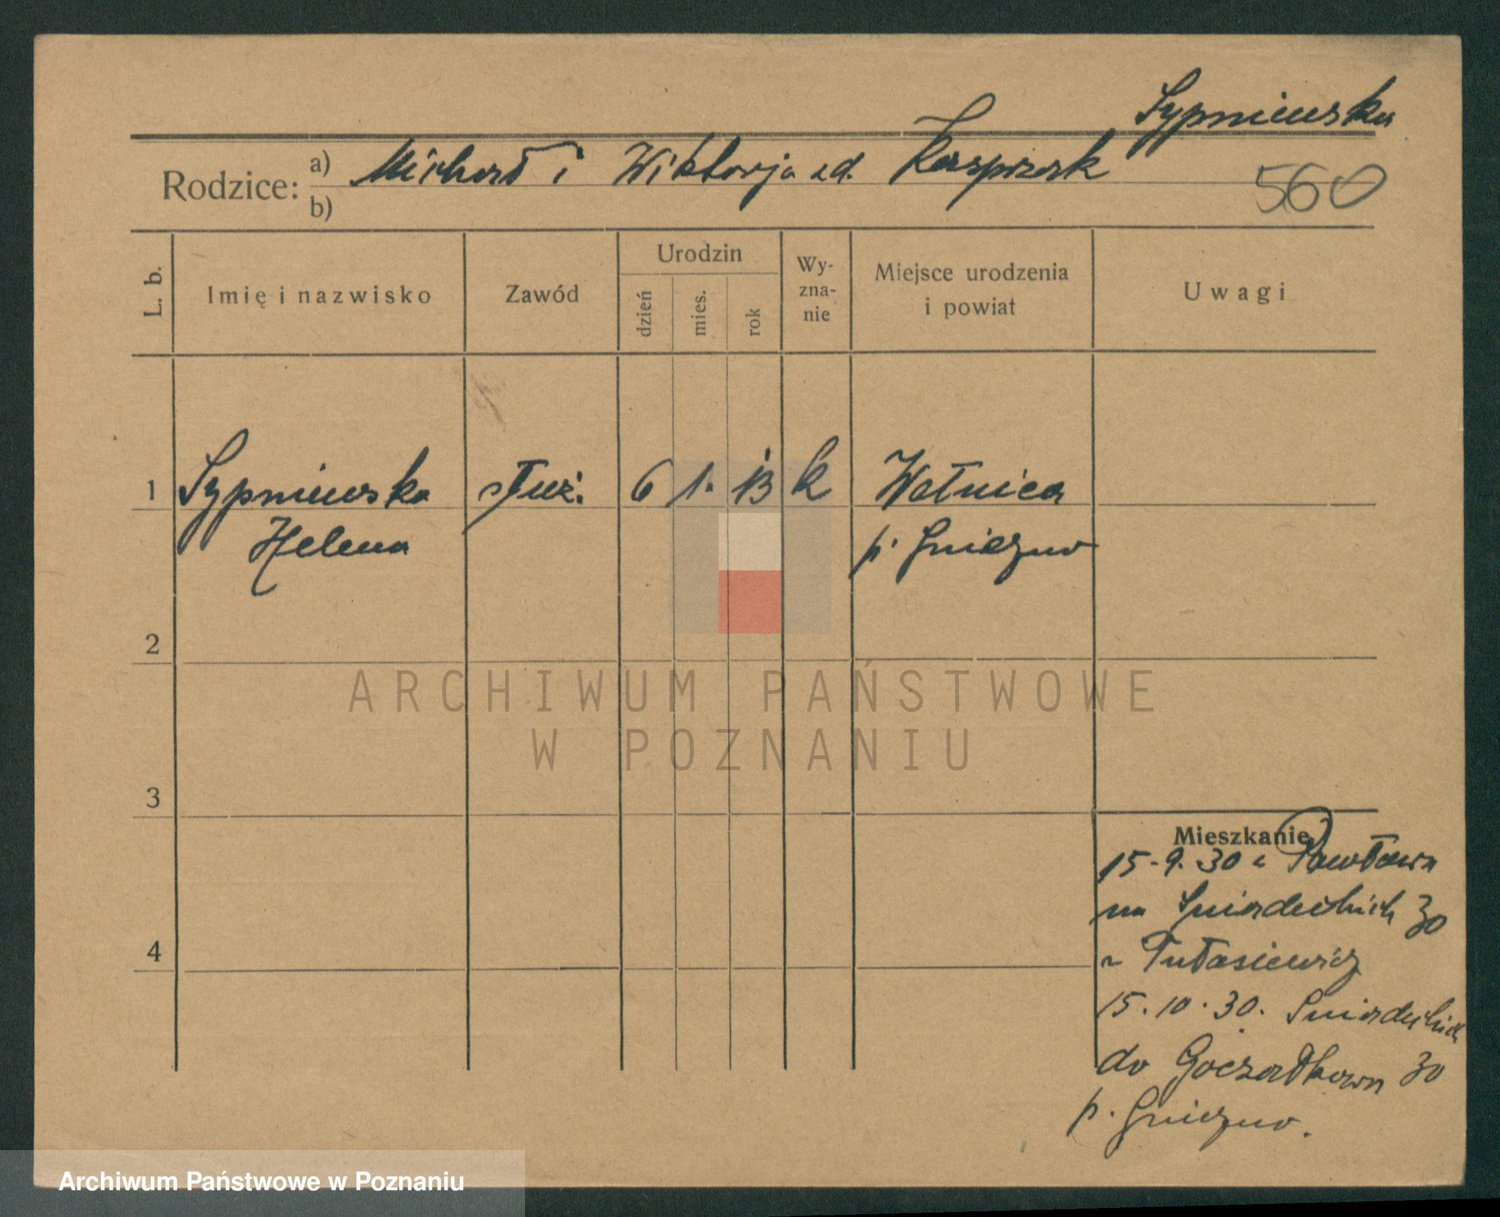 Sypniewska
Rodzice: a) Michał i Wiktorja zd. Kasprzak
b)
560
L. b.
Imię i nazwisko
Zawód
Urodzin
dzień
mies.
rok
Wy-
zna-
nie
Miejsce urodzenia
i powiat
Uwagi
1 Sypniewska służ. 6 1. 13 k Wełnica
Helena p. Gniezno
2
3
4
ARCHIWUM PAŃSTWOWE
W POZNANIU
Mieszkanie
15-9.30 z Pawłowa
na Śniadeckich 30
Tułasiewicz
15.10.30. Śniadeckich 30
do Goczałkowa
p. Gniezno.
Archiwum Państwowe w Poznaniu